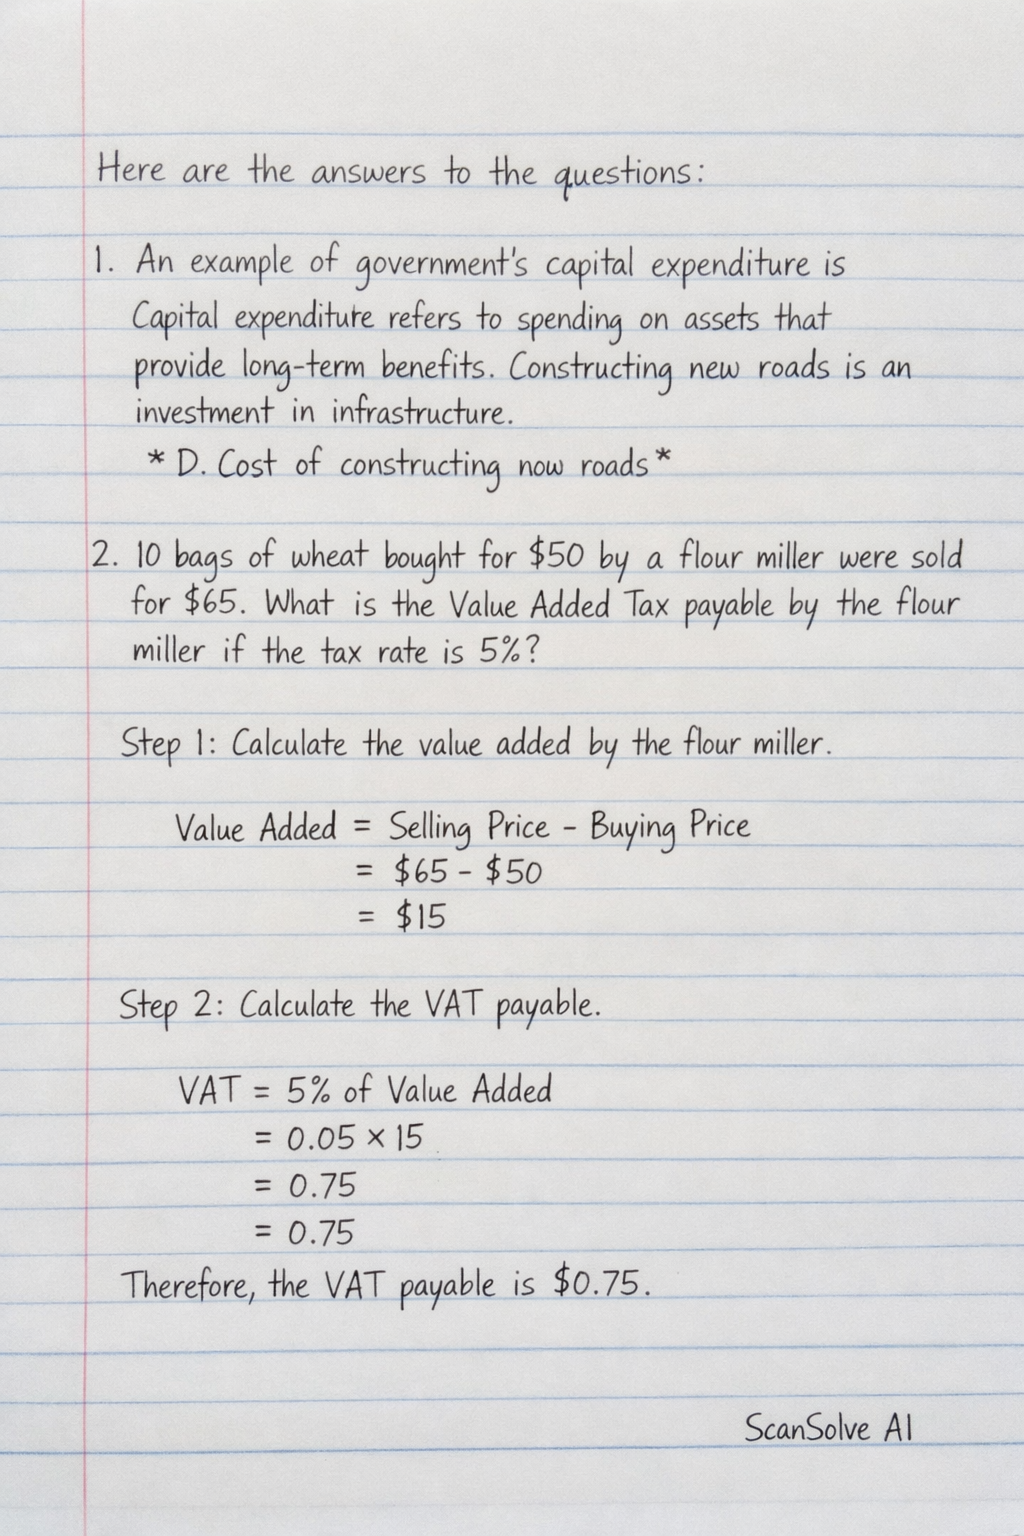 Here are the answers to the questions:
1. An example of government's capital expenditure is
Capital expenditure refers to spending on assets that
provide long-term benefits. Constructing new roads is an
investment in infrastructure.
* D. Cost of constructing now roads*
2. 10 bags of wheat bought for $50 by a flour miller were sold
for $65. What is the Value Added Tax payable by the flour
miller if the tax rate is 5%?
Step 1: Calculate the value added by the flour miller.
Value Added = Selling Price - Buying Price
= $65 - $50
= $15
Step 2: Calculate the VAT payable.
VAT = 5% of Value Added
= 0.05 × 15
= 0.75
= 0.75
Therefore, the VAT payable is $0.75.
ScanSolve AI